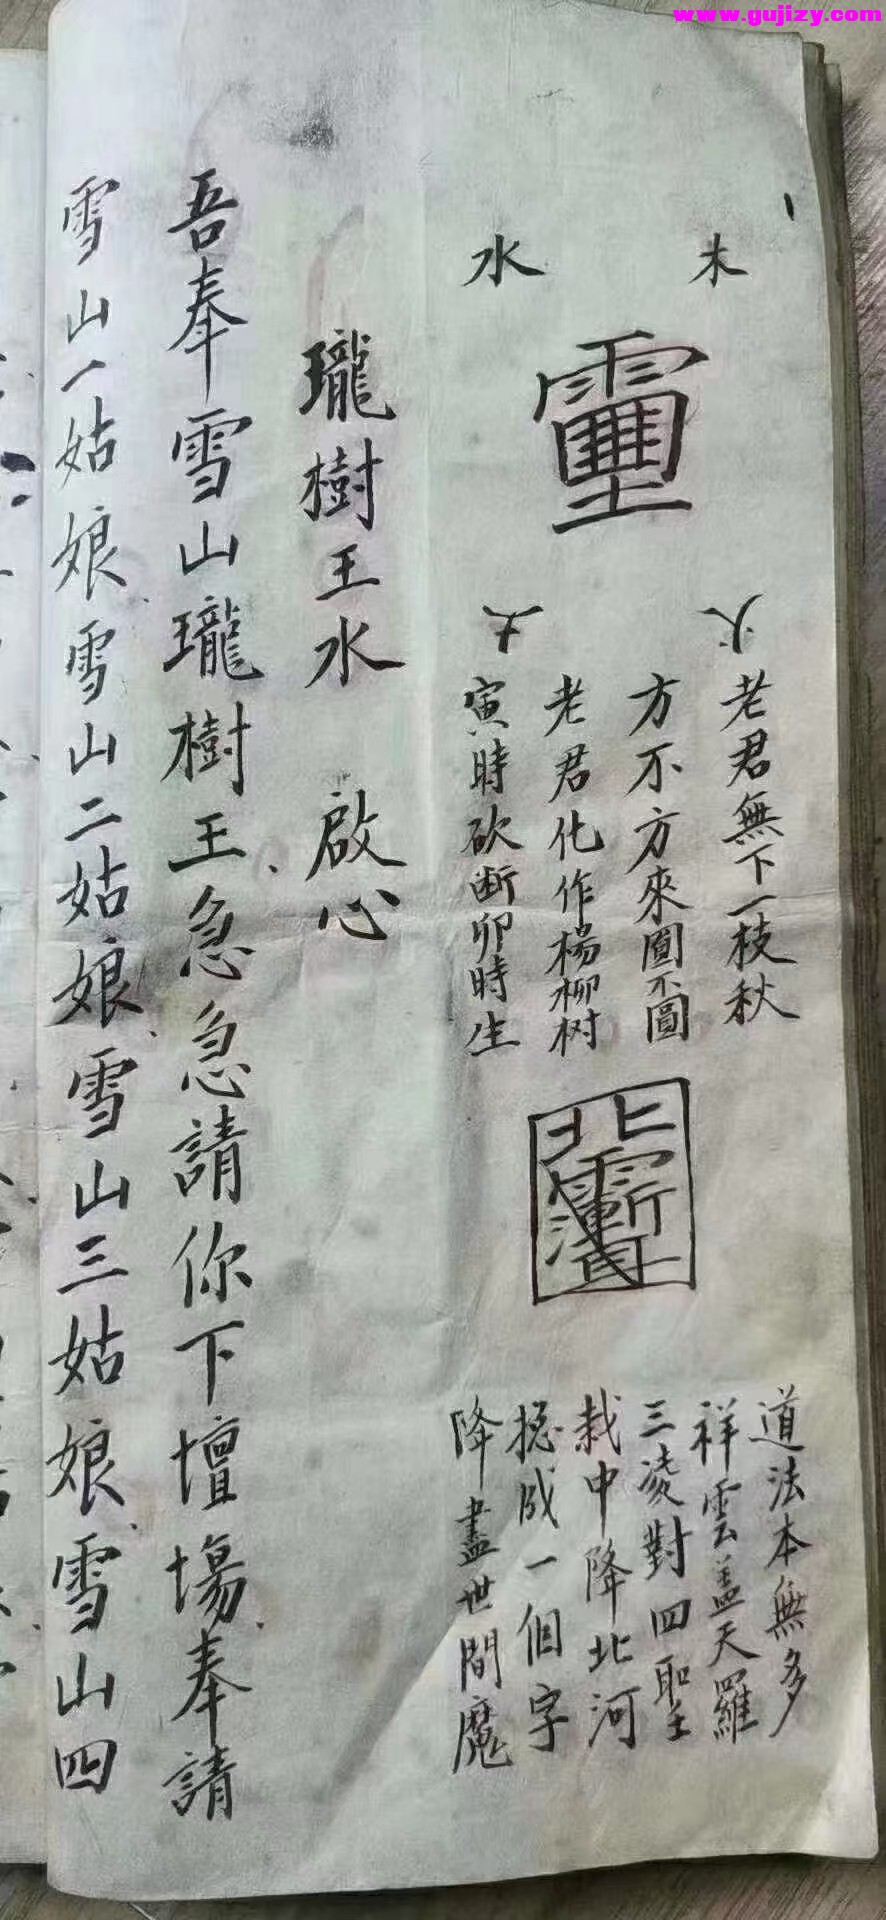 www.gujizy.com
木
水
火
土
老君無下一枝秋
方不方來圓不圓
老君化作楊柳树
寅時砍断卯時生
北
道法本無多
祥雲盖天羅
三凌對四聖
栽中降北河
捴成一個字
降盡世間魔
瓏樹王水 啟心
吾奉雪山瓏樹王急急請你下壇場奉請
雪山一姑娘雪山二姑娘雪山三姑娘雪山四